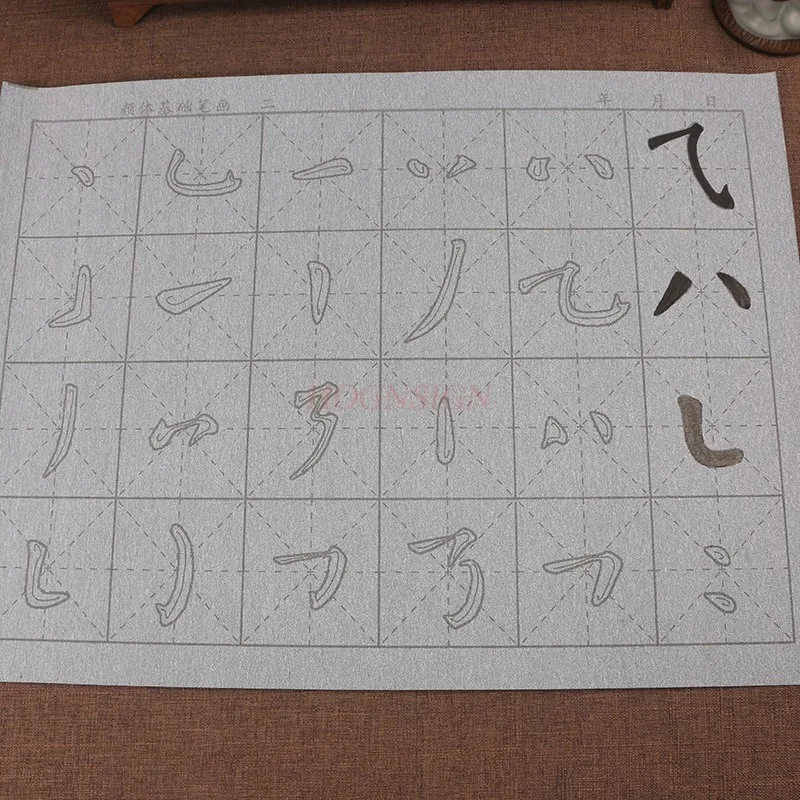 颜体基础笔画 二 年 月 日
DOONSIGN